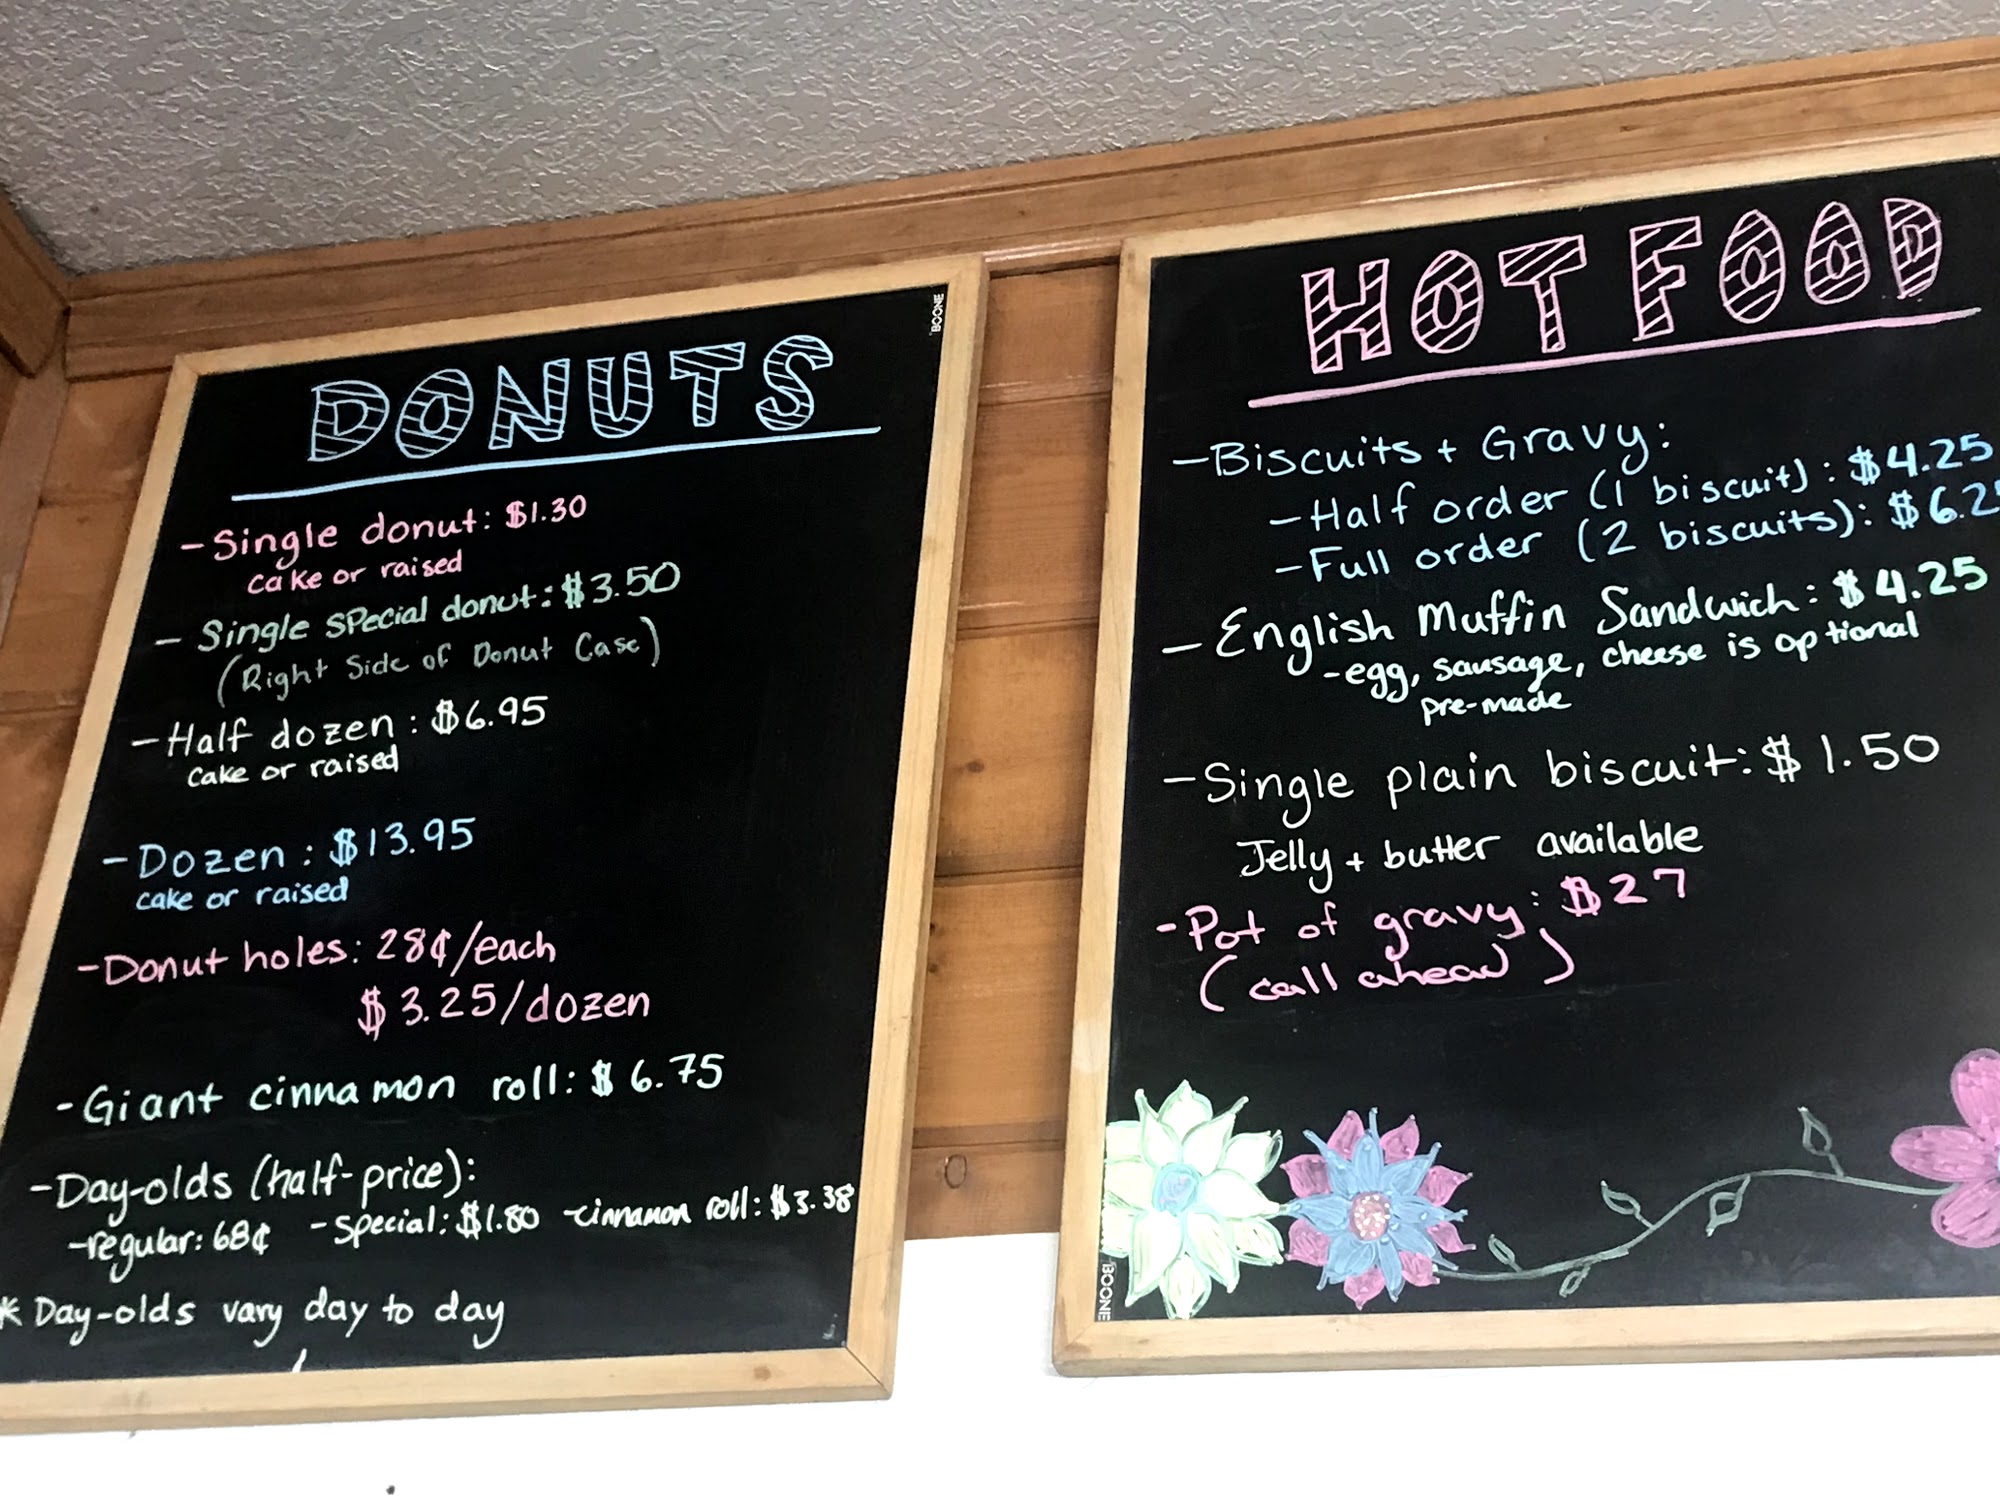 BOONE
DONUTS
- Single donut: $1.30
cake or raised
- Single special donut: $3.50
(Right Side of Donut Case)
- Half dozen: $6.95
cake or raised
- Dozen: $13.95
cake or raised
- Donut holes: 28¢/each
$3.25/dozen
- Giant cinnamon roll: $6.75
- Day-olds (half-price):
- regular: 68¢ - special: $1.80 - cinnamon roll: $3.38
* Day-olds vary day to day
HOT FOOD
- Biscuits + Gravy:
- Half order (1 biscuit): $4.25
- Full order (2 biscuits): $6.2
- English Muffin Sandwich: $4.25
- egg, sausage, cheese is optional
pre-made
- Single plain biscuit: $1.50
Jelly + butter available
- Pot of gravy: $27
(call ahead)
BOONE